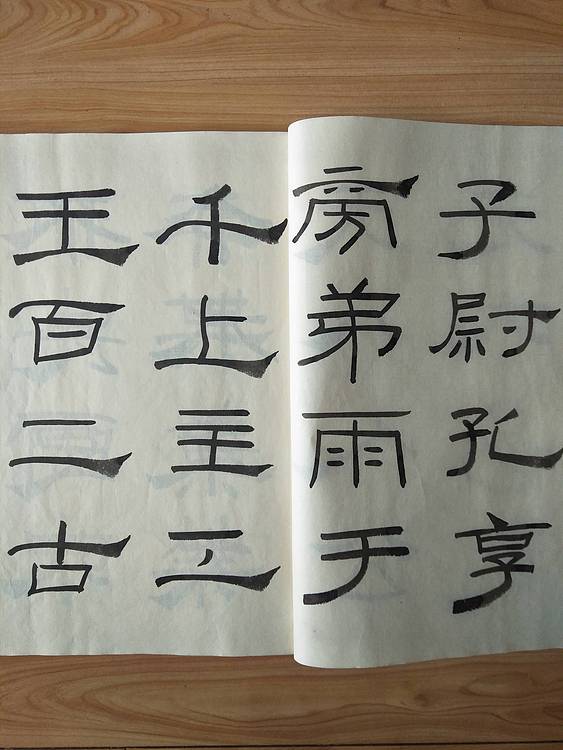 子尉孔享
房弟雨于
千上主工
王百二古